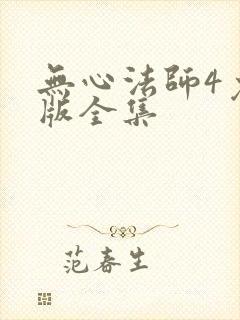 無心法師4
版全集
范春生